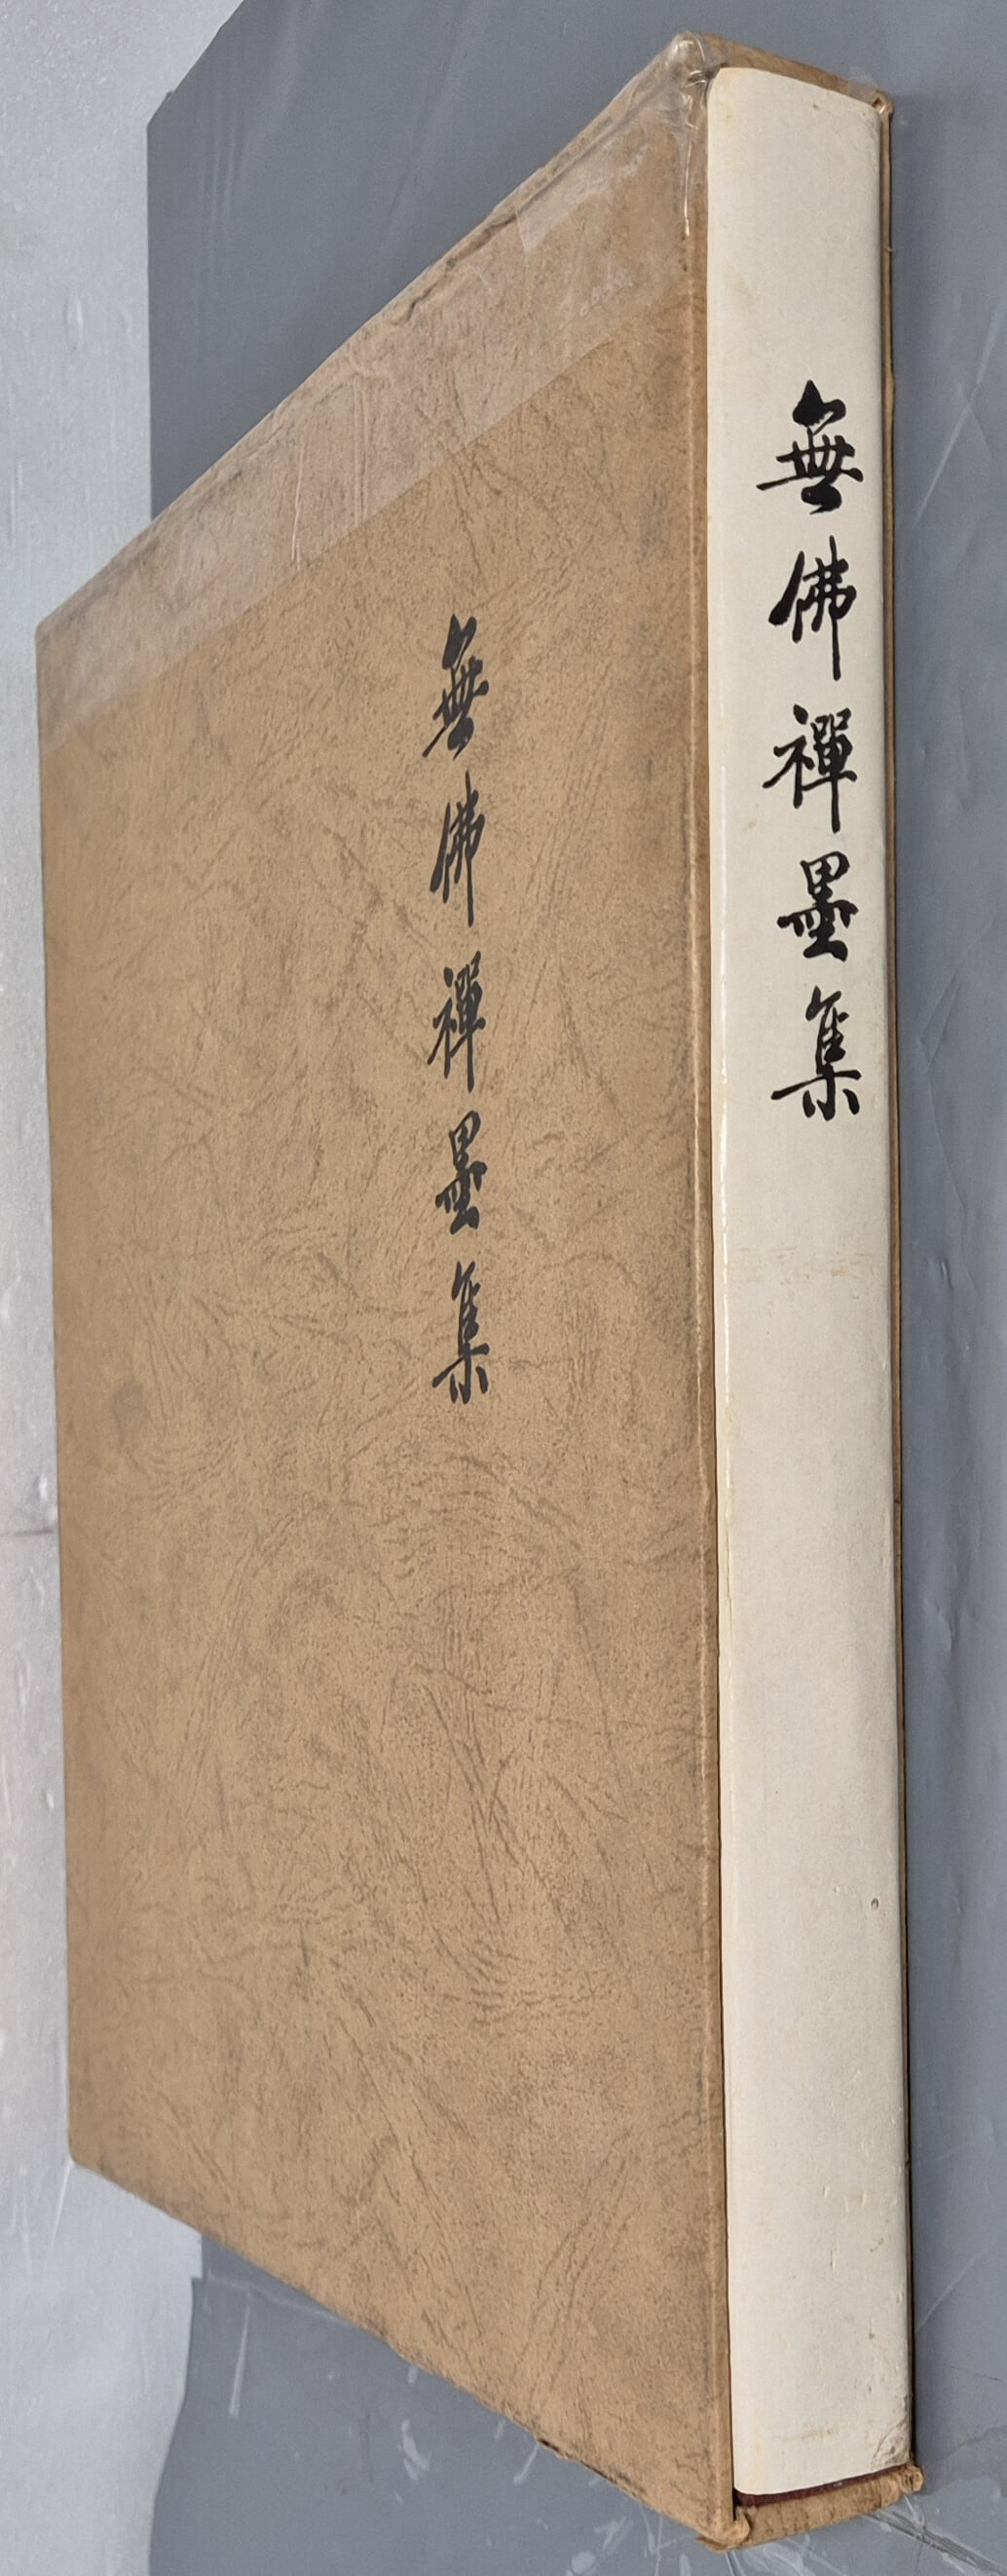 無佛禪墨集
無佛禪墨集